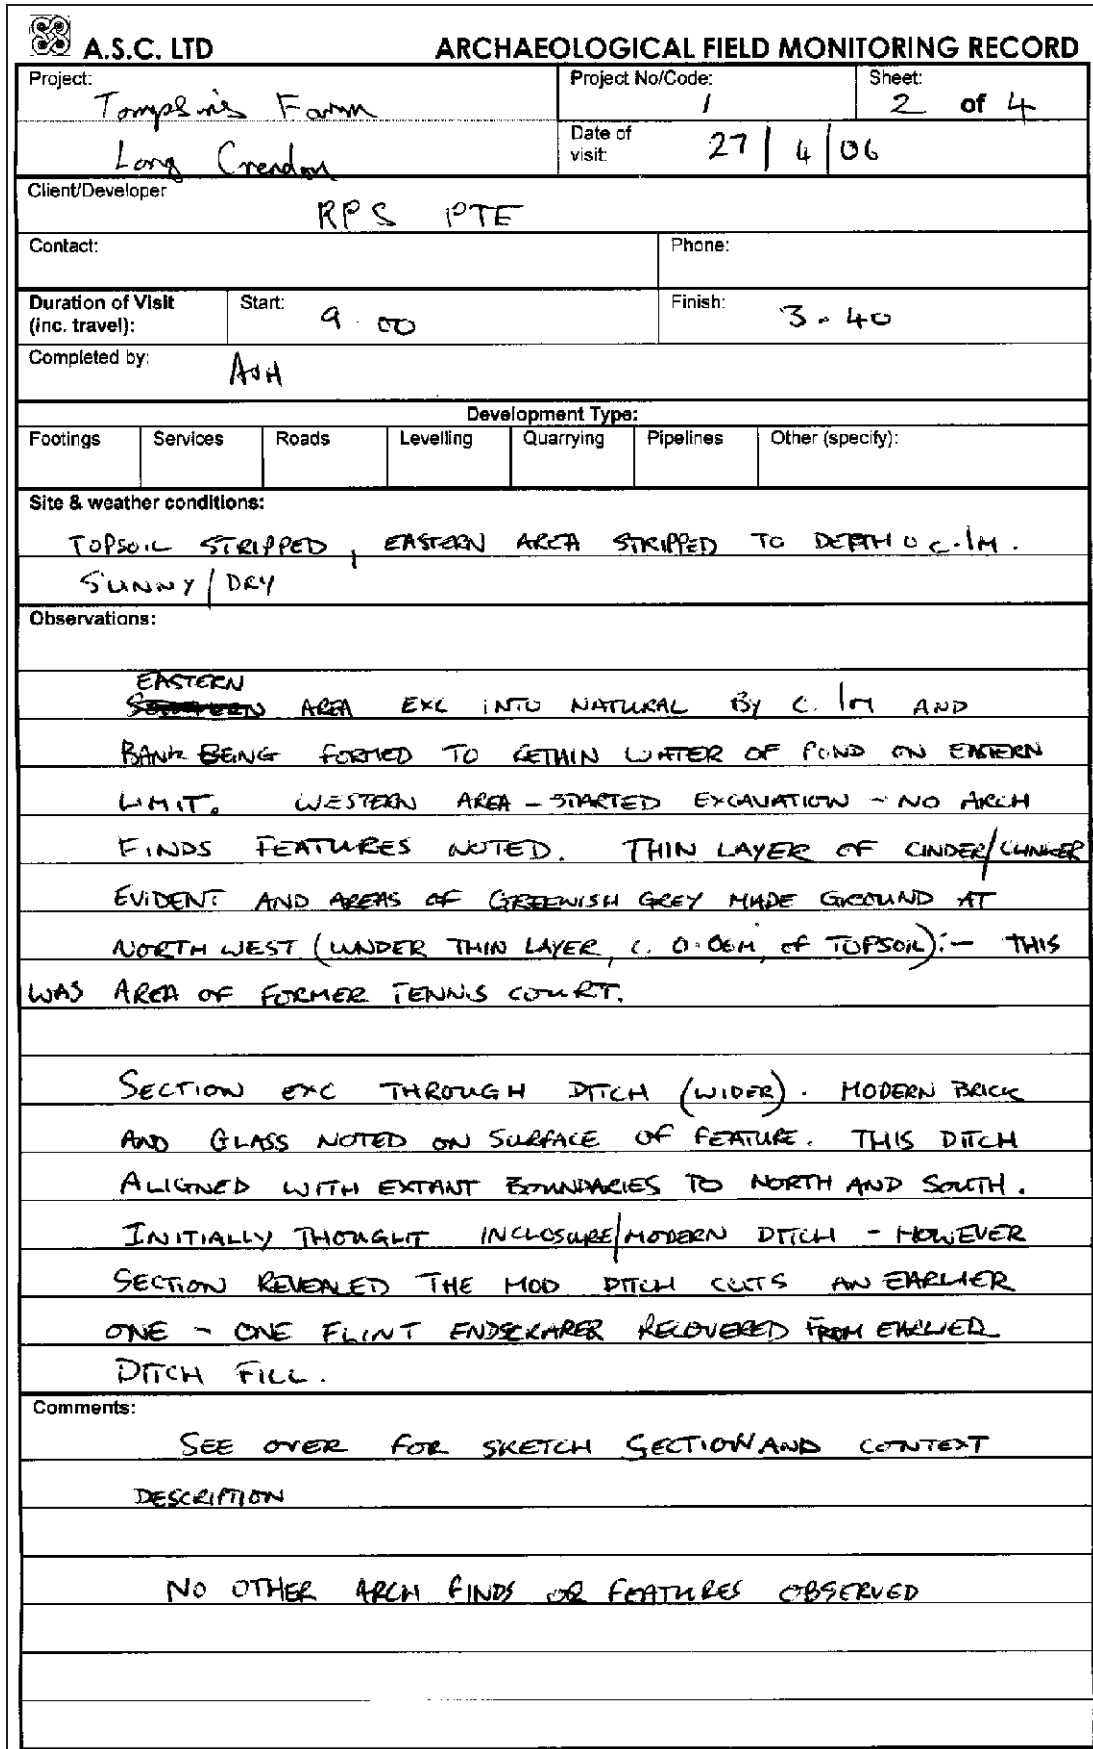 A.S.C. LTD ARCHAEOLOGICAL FIELD MONITORING RECORD
Project: Project No/Code: Sheet:
Farm 1 2 of 4
Long Crendon Date of visit: 27 | 4 | 06
Client/Developer
RPS
Contact: Phone:
Duration of Visit (inc. travel): Start: 9.00 Finish: 3.40
Completed by: AJH
Development Type:
Footings Services Roads Levelling Quarrying Pipelines Other (specify):
Site & weather conditions:
TOPSOIL STRIPPED, EASTERN AREA STRIPPED TO DEPTH c.1M.
SUNNY/DRY
Observations:
EASTERN
AREA EXC INTO NATURAL BY C. 1M AND
BANK BEING FORMED TO RETAIN WATER OF POND ON EASTERN
LIMIT. WESTERN AREA - STARTED EXCAVATION - NO ARCH
FINDS FEATURES NOTED. THIN LAYER OF CINDER/CLINKER
EVIDENT AND AREAS OF GREENISH GREY MADE GROUND AT
NORTH WEST (UNDER THIN LAYER, C. 0.06M, OF TOPSOIL):- THIS
WAS AREA OF FORMER TENNIS COURT.
SECTION EXC THROUGH DITCH (WIDER). MODERN BRICK
AND GLASS NOTED ON SURFACE OF FEATURE. THIS DITCH
ALIGNED WITH EXTANT BOUNDARIES TO NORTH AND SOUTH.
INITIALLY THOUGHT INCLOSURE/MODERN DITCH - HOWEVER
SECTION REVEALED THE MOD DITCH CUTS AN EARLIER
ONE - ONE FLINT ENDSCRAPER RECOVERED FROM EARLIER
DITCH FILL.
Comments:
SEE OVER FOR SKETCH SECTION AND CONTEXT
DESCRIPTION
NO OTHER ARCH FINDS OR FEATURES OBSERVED